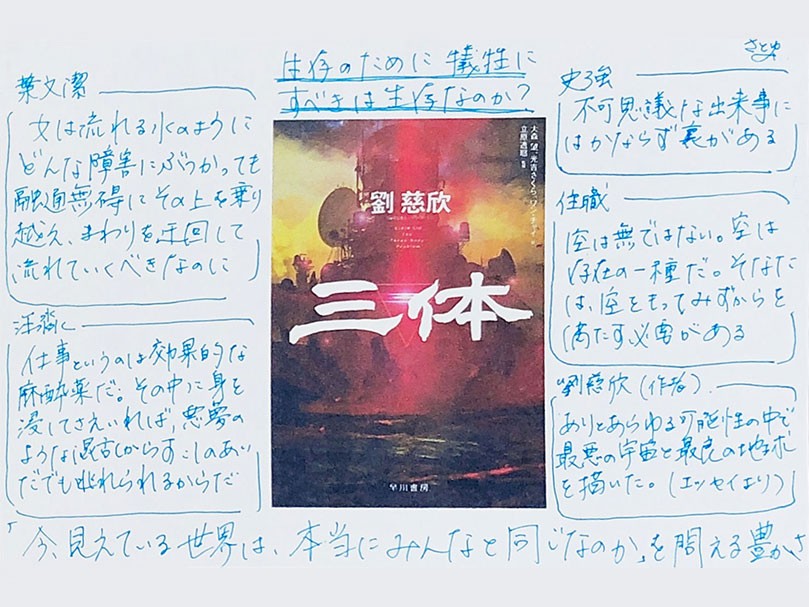 生存のために犠牲に
すべきは生存なのか?
さとゆ
葉文潔
女は流れる水のように
どんな障害にぶつかっても
融通無碍にその上を乗り
越え、まわりを迂回して
流れていくべきなのに
汪淼
仕事というのは効果的な
麻酔薬だ。その中に身を
浸してさえいれば、悪夢の
ような混乱からすこしのあい
だでも逃れられるからだ
大森望、光吉さくら、ワン・チャイ 訳
立原透耶 監修
劉慈欣
Cixin Liu
The
Three-Body
Problem
三体
早川書房
史強
不可思議な出来事に
はかならず裏がある
住職
空は無ではない。空は
存在の一種だ。そなた
は、空をもってみずからを
満たす必要がある
劉慈欣(作者)
ありとあらゆる可能性の中で
最悪の宇宙と最良の地球
を描いた。(エッセイより)
「今、見えている世界は、本当にみんなと同じなのか」を問える豊かさ